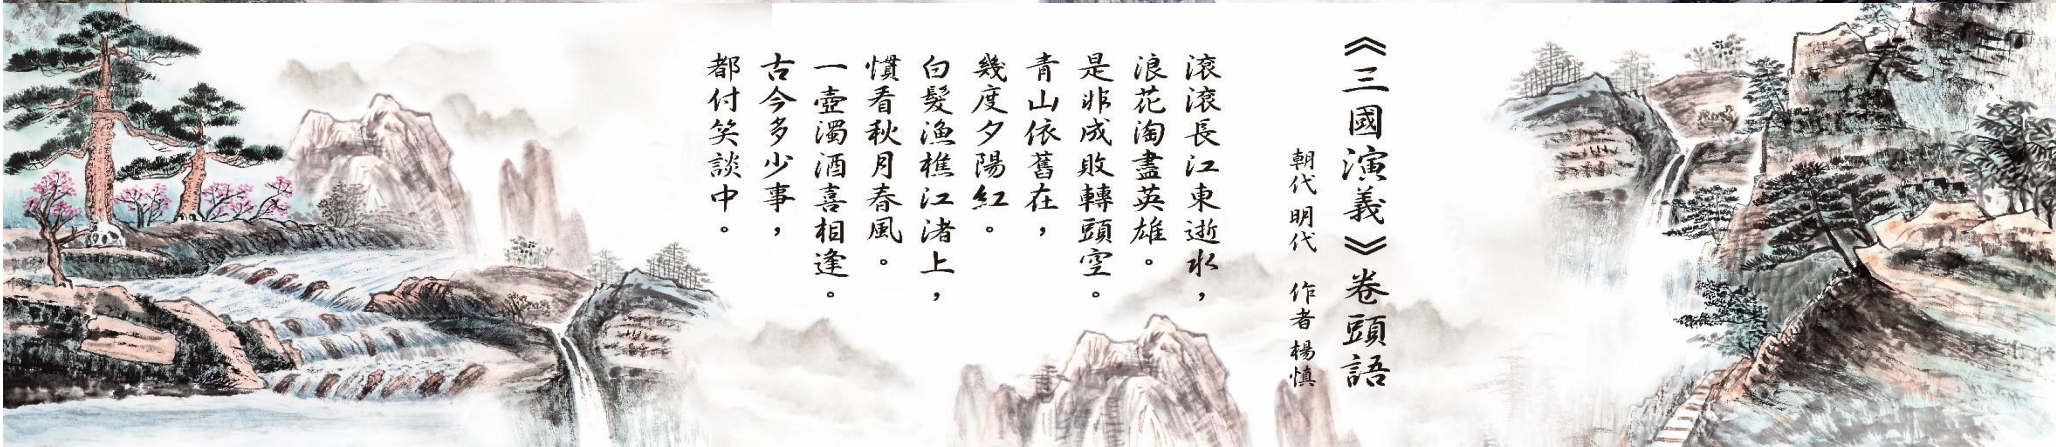 《三國演義》卷頭語
朝代明代　作者楊慎
滚滚長江東逝水，
浪花淘盡英雄。
是非成敗轉頭空。
青山依舊在，
幾度夕陽紅。
白髮漁樵江渚上，
慣看秋月春風。
一壺濁酒喜相逢。
古今多少事，
都付笑談中。